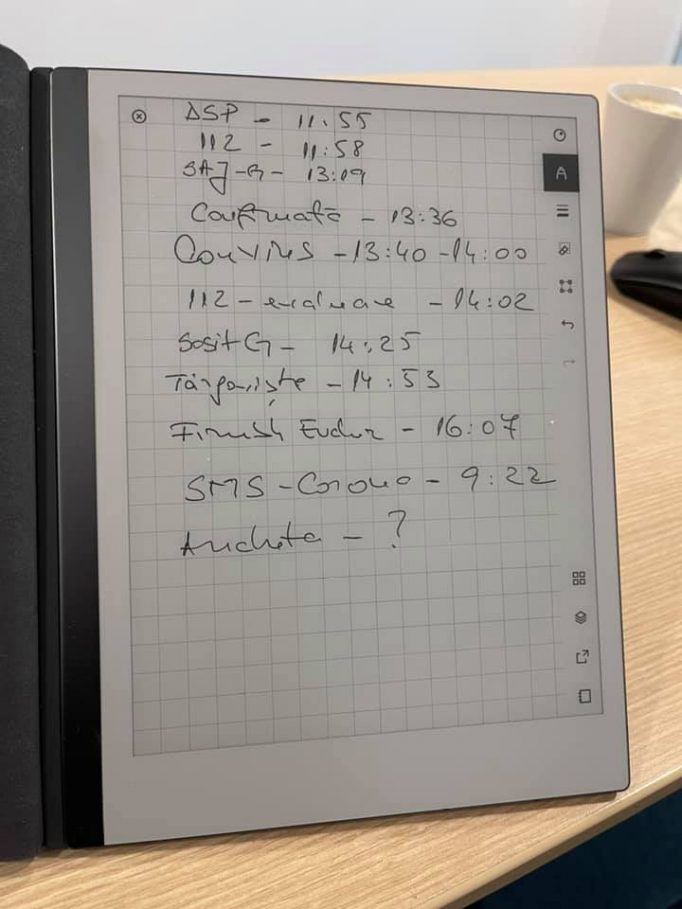 DSP - 11:55
112 - 11:58
SAJ-G - 13:09
Confirmată - 13:36
ConVINS - 13:40 - 14:00
112 - evaluare - 14:02
Sosit G - 14:25
Târgoviște - 14:53
- 16:07
SMS - Corona - 9:22
Ancheta - ?